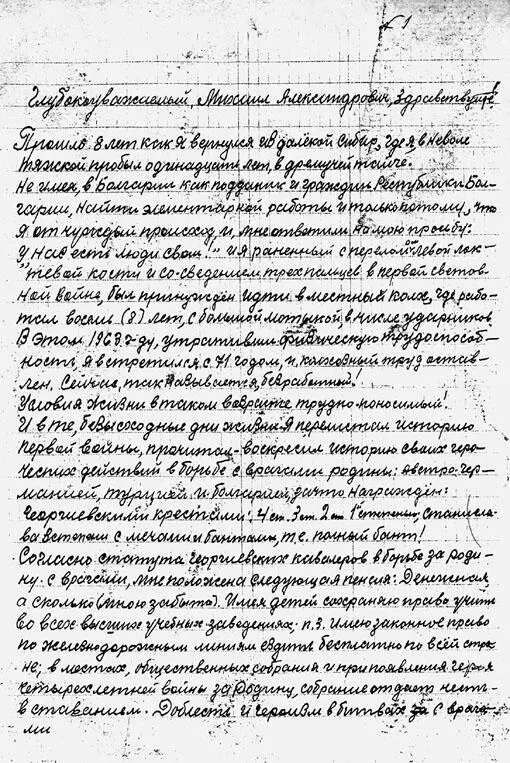 № 1
Глубокоуважаемый, Михаил Александрович, здравствуйте!
Прошло 8 лет как я вернулся из далёкой Сибир, где я в неволе
тяжской пробыл одинадцать лет, в дремучей тайге.
Не имея, в Болгарии как подданик и граждан Республики Бол-
гарии, найти элементарной работы и только потому, что
я от чуждый происход, и, мне ответили на мою просбу:
У нас есть люди свои!" и я раненный с перелом левой лок-
"тевой кости и со-сведением трех пальцев в первой светов-
ной войне, был принужден идти в местный колх, где рабо-
тал восемь (8) лет, с большой мотыкой, в числе ударников
В этом 1968 г-ду, утративши физическую трудоспособ-
ность, я встретился с 71 годом, и, колхозный труд остав-
лен. Сейчас, так называется, безработный!
Условия жизни в таком возрасте трудно-поносимый!
И в те, безысходные дни жизни я перелистал историю
первой войны, прочитал-воскресил историю своих геро-
ческих действий в борьбе с врагами родины: австро-гер-
манией, турцией и болгарией, за что награждён:
Георгиевскими крестами: 4 ст. 3 ст. 2 ст 1 степени, Станисла-
ва 3 степени с мечами и бантами, т.е. полный бант!
Согласно статута георгиевских кавалеров в борьбе за роди-
ну с врагами, мне положена следующая пенсия: Денежная
а сколько (мною забыто). Имея детей сохраняю права учить
во всех высших учебных заведениях; п. 3. Имею законное право
по железнодорожным линиям ездить бесплатно по всей стра-
не; в местах, общественных собрания и при появления героя
четырехлетней войны за Родину, собрание отдает честь-
вставанием. Доблесть и героизм в битвах за с врага-
ми